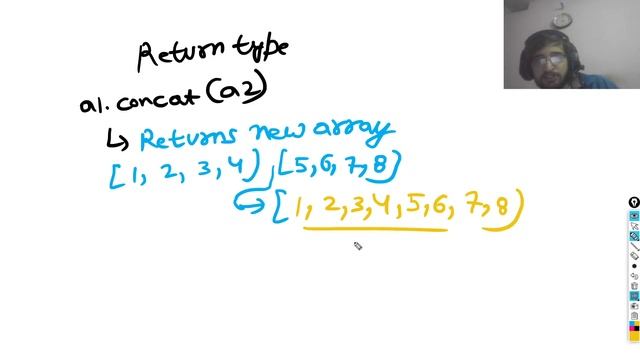 Return type
a1.concat(a2)
↳ Returns new array
[1, 2, 3, 4], [5, 6, 7, 8]
↳ [1, 2, 3, 4, 5, 6, 7, 8]